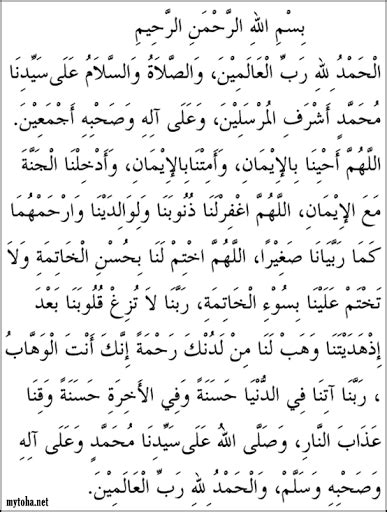 بِسْمِ اللهِ الرَّحْمَنِ الرَّحِيمِ
الْحَمْدُ لِلهِ رَبِّ الْعَالَمِيْنَ، وَالصَّلَاةُ وَالسَّلَامُ عَلَى سَيِّدِنَا
مُحَمَّدٍ أَشْرَفِ الْمُرْسَلِيْنَ، وَعَلَى آلِهِ وَصَحْبِهِ أَجْمَعِيْنَ.
اللَّهُمَّ أَحْيِنَا بِالإِيْمَانِ، وَأَمِتْنَابِالإِيْمَانِ، وَأَدْخِلْنَا الْجَنَّةَ
مَعَ الإِيْمَانِ، اللَّهُمَّ اغْفِرْلَنَا ذُنُوبَنَا وَلِوَالِدَيْنَا وَارْحَمْهُمَا
كَمَا رَبَّيَانَا صَغِيْرًا، اللَّهُمَّ اخْتِمْ لَنَا بِحُسْنِ الْخَاتِمَةِ وَلاَ
تَخْتِمْ عَلَيْنَا بِسُوْءِ الْخَاتِمَةِ، رَبَّنَا لاَ تُزِغْ قُلُوبَنَا بَعْدَ
إِذْهَدَيْتَنَا وَهَبْ لَنَا مِنْ لَدُنْكَ رَحْمَةً إِنَّكَ أَنْتَ الْوَهَّابُ
، رَبَّنَا آتِنَا فِي الدُّنْيَا حَسَنَةً وَفِي الأَخِرَةِ حَسَنَةً وَقِنَا
عَذَابَ النَّارِ، وَصَلَّى اللهُ عَلَى سَيِّدِنَا مُحَمَّدٍ وَعَلَى آلِهِ
وَصَحْبِهِ وَسَلَّمْ، وَالْحَمْدُ لِلهِ رَبِّ الْعَالَمِيْنَ.
mytoha.net